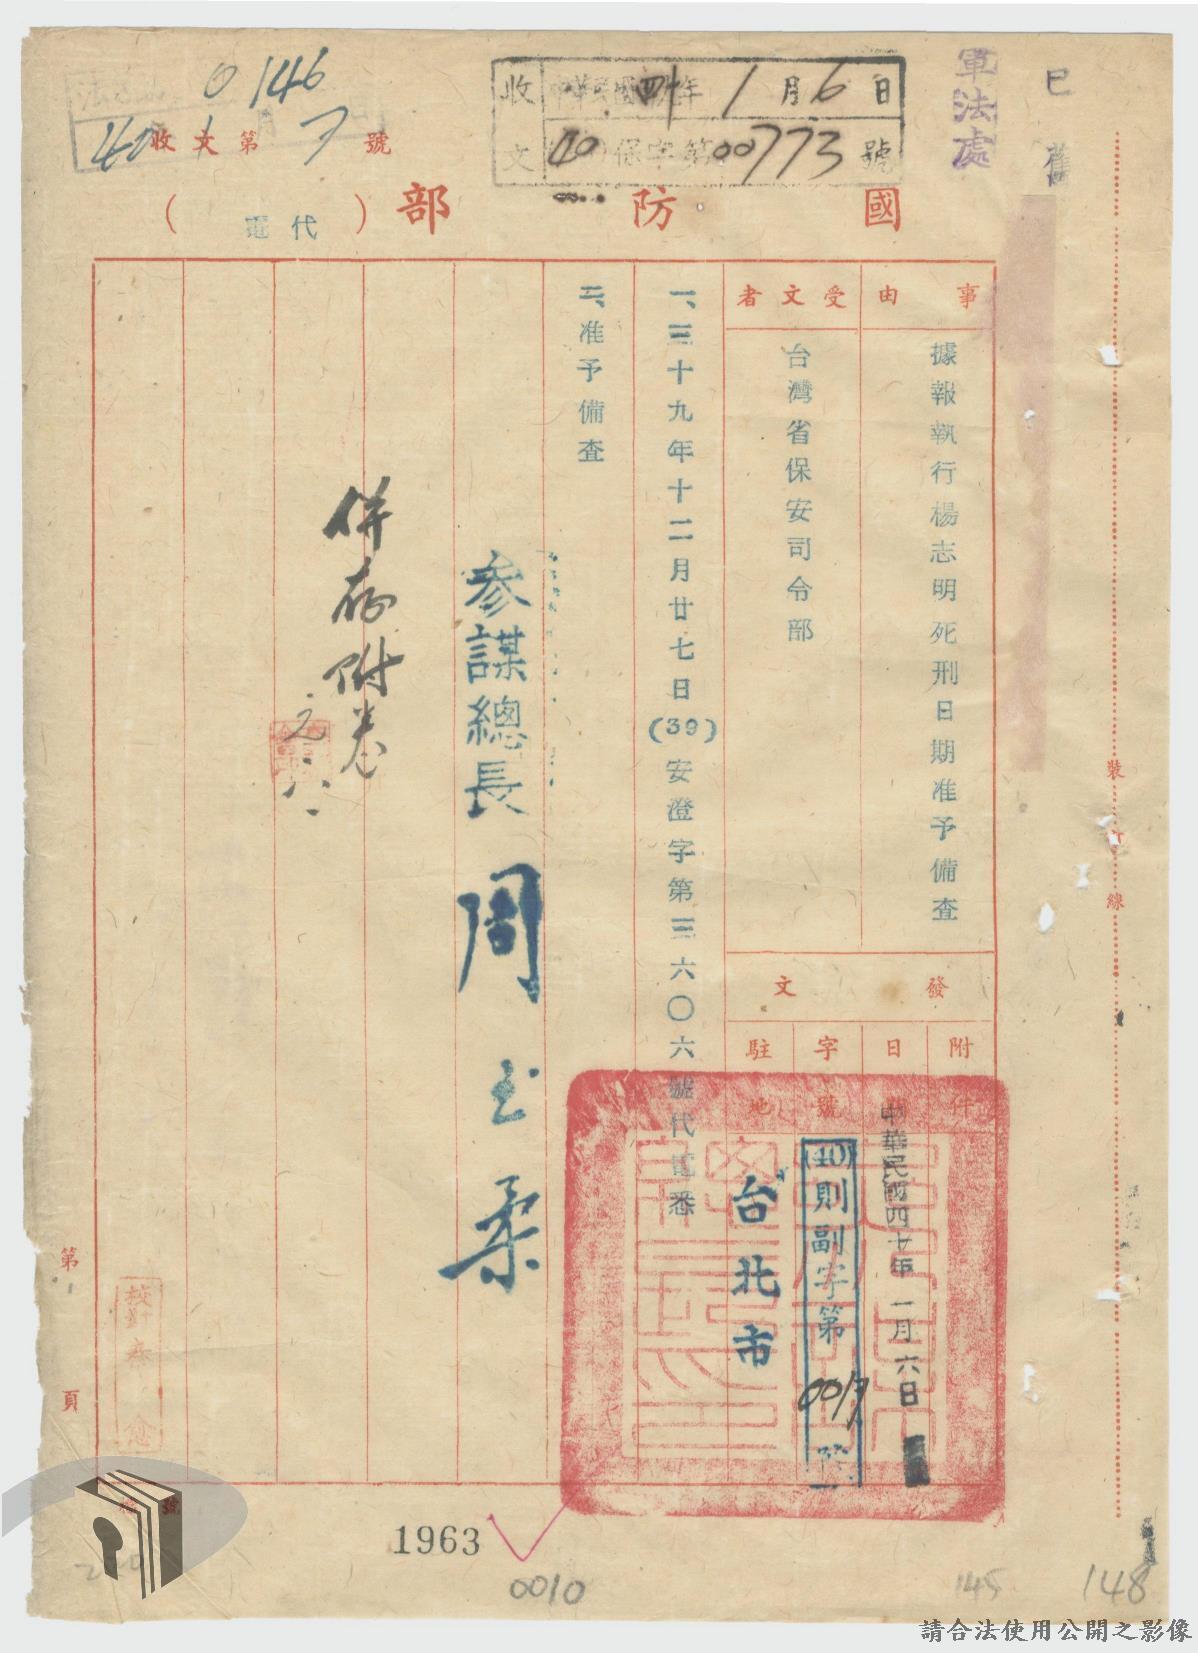 軍法處
已舊
0146
收文第 7 號
收 中華民國四十年1月6日
文 40 保字第00773號
國防部(代電)
事由
據報執行楊志明死刑日期准予備查
受文者
台灣省保安司令部
發文
附件
日
中華民國四十年一月六日
字號
(40)則副字第
駐地
台北市
一、三十九年十二月廿七日(39)安澄字第三六〇六號代電悉
二、准予備查
參謀總長 周至柔
併存附卷
裝訂線
第
頁
1963
0010
145
148
請合法使用公開之影像